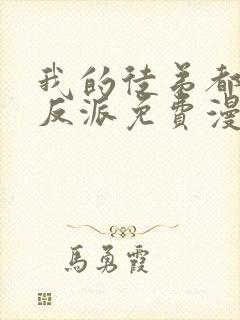 我的徒弟都
反派免費漫
馬勇霞